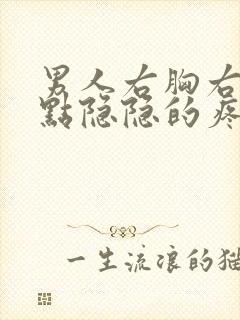 男人右胸右
點隐隐的疼
一生流浪的猫